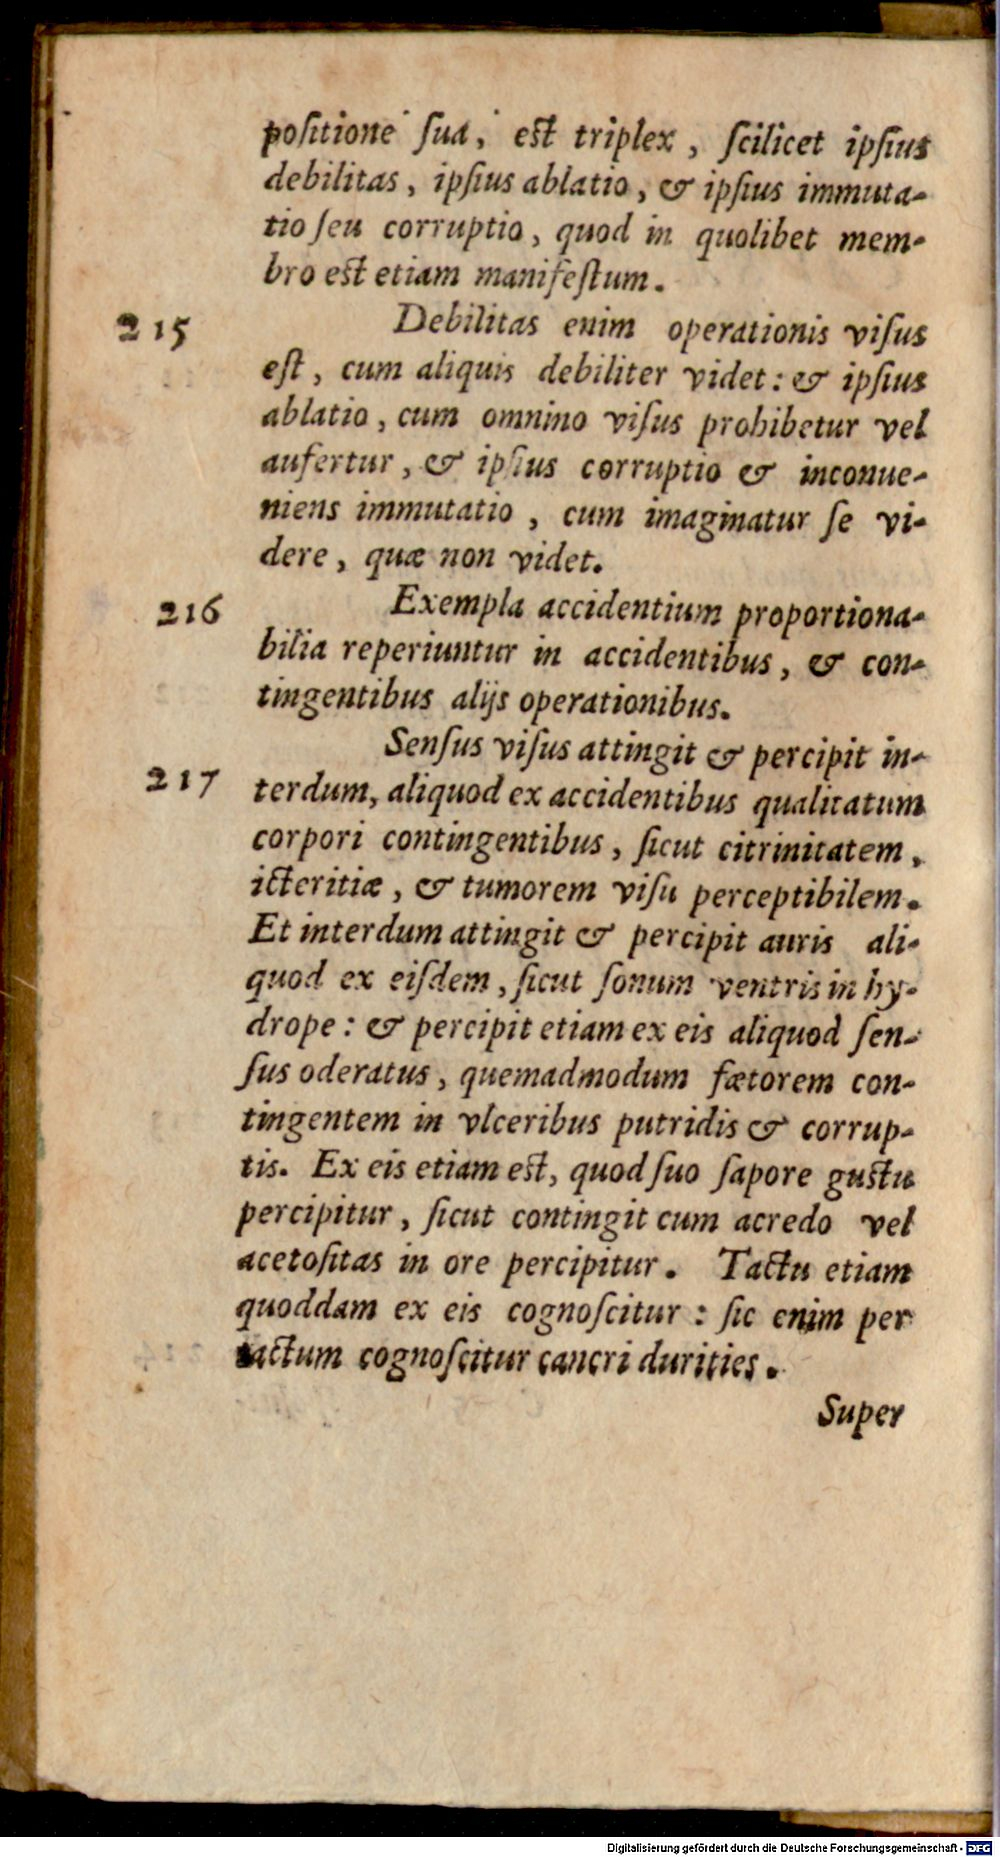 positione sua, est triplex, scilicet ipsius
debilitas, ipsius ablatio, & ipsius immuta-
tio seu corruptio, quod in quolibet mem-
bro est etiam manifestum.
215 Debilitas enim operationis visus
est, cum aliquis debiliter videt: & ipsius
ablatio, cum omnino visus prohibetur vel
aufertur, & ipsius corruptio & inconue-
niens immutatio, cum imaginatur se vi-
dere, quæ non videt.
216 Exempla accidentium proportiona-
bilia reperiuntur in accidentibus, & con-
tingentibus alijs operationibus.
Sensus visus attingit & percipit in-
217 terdum, aliquod ex accidentibus qualitatum
corpori contingentibus, sicut citrinitatem,
icteritiæ, & tumorem visu perceptibilem.
Et interdum attingit & percipit auris ali-
quod ex eisdem, sicut sonum ventris in hy-
drope: & percipit etiam ex eis aliquod sen-
sus oderatus, quemadmodum fætorem con-
tingentem in vlceribus putridis & corrup-
tis. Ex eis etiam est, quod suo sapore gustu
percipitur, sicut contingit cum acredo vel
acetositas in ore percipitur. Tactu etiam
quoddam ex eis cognoscitur: sic enim per
tactum cognoscitur cancri durities.
Super
Digitalisierung gefördert durch die Deutsche Forschungsgemeinschaft - DFG